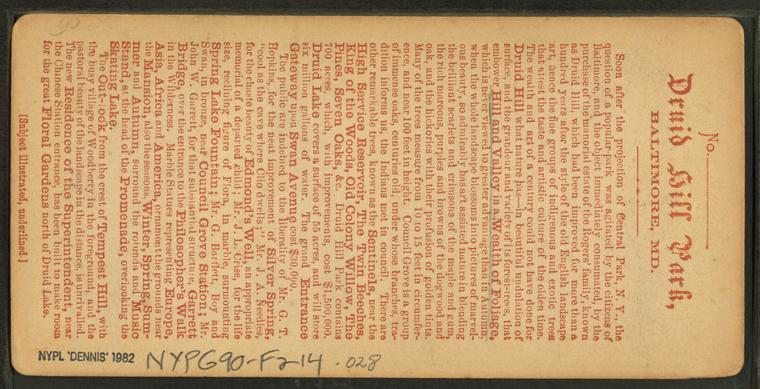 No.
Druid Hill Park,
BALTIMORE, MD.
Soon after the projection of Central Park, N. Y., the
question of a popular park was agitated by the citizens of
Baltimore, and the object immediately consumated, by the
purchase of the manorial estate of the Rogers' family, known
as Druid Hill, which had been improved for more than a
hundred years after the style of the old English landscape
art, hence the fine groups of indigenous and exotic trees
that attest the taste and artistic culture of the olden time.
The wealth and art of a century could not have done for
Druid Hill what nature has—its beautiful undulation of
surface, and the grandeur and variety of its forest-trees, that
embower Hill and Valley in a Wealth of Foliage,
which is never viewed to greater advantage than in Autumn,
when the whole landscape blossoms into pictures of marvel-
ous beauty, so admirably has art assisted nature in blending
the brilliant scarlets and crimsons of the maple and gum,
the rich maroons, purples and browns of the dogwood and
oak, and the hickories with their profusion of golden tints.
Many of the trees measure from 10 to 15 feet in circumfer-
ence, and near a hundred feet in height. Conspicuous is a group
of immense oaks, centuries old, under whose branches, tra-
dition informs us, the Indians met in council. There are
other remarkable trees, known as the Sentinels, near the
High Service Reservoir, The Twin Beeches,
King of the Woods, Old Colony Willow, The
Pines, Seven Oaks, &c. Druid Hill Park contains
700 acres, which, with improvements, cost $1,500,000.
Druid Lake covers a surface of 55 acres, and will store
six million gallons of water. The grand Entrance
Gateway upon Swan Avenue cost $20,000.
The Public are indebted to the liberality of Mr. G. T.
Hopkins, for the neat improvement of Silver Spring,
"cool as the cave where Clio dwells;" Mr. J. A. Needles,
for the chaste beauty of Edmond's Well, an appropriate
memento to a departed friend; Mr. J. L. McGee, for the life
size, reclining figure of Flora, in marble, surmounting
Spring Lake Fountain; Mr. G. Bartlett, Boy and
Swan, in bronze, near Council Grove Station; Mr.
John W. Garrett, for that substantial structure, Garrett
Bridge, over the entrance to the Philosopher's Walk
in the wilderness; the four Statues representing Europe,
Asia, Africa and America, ornament the grounds near
the Mansion, also the seasons, Winter, Spring, Sum-
mer and Autumn, surround the rounds and Music
Stand, at the head of the Promenade, overlooking the
Skating Lake.
The Out-look from the crest of Tempest Hill, with
the busy village of Woodberry in the foreground, and the
pastoral beauty of the landscape in the distance, is unrivalled.
The new Residence of the Superintendent, near
the Chinese Station entrance, has been built to make room
for the great Floral Gardens north of Druid Lake.
[Subject illustrated, underlined.]
NYPL 'DENNIS' 1982 NYPG90-F214 .028